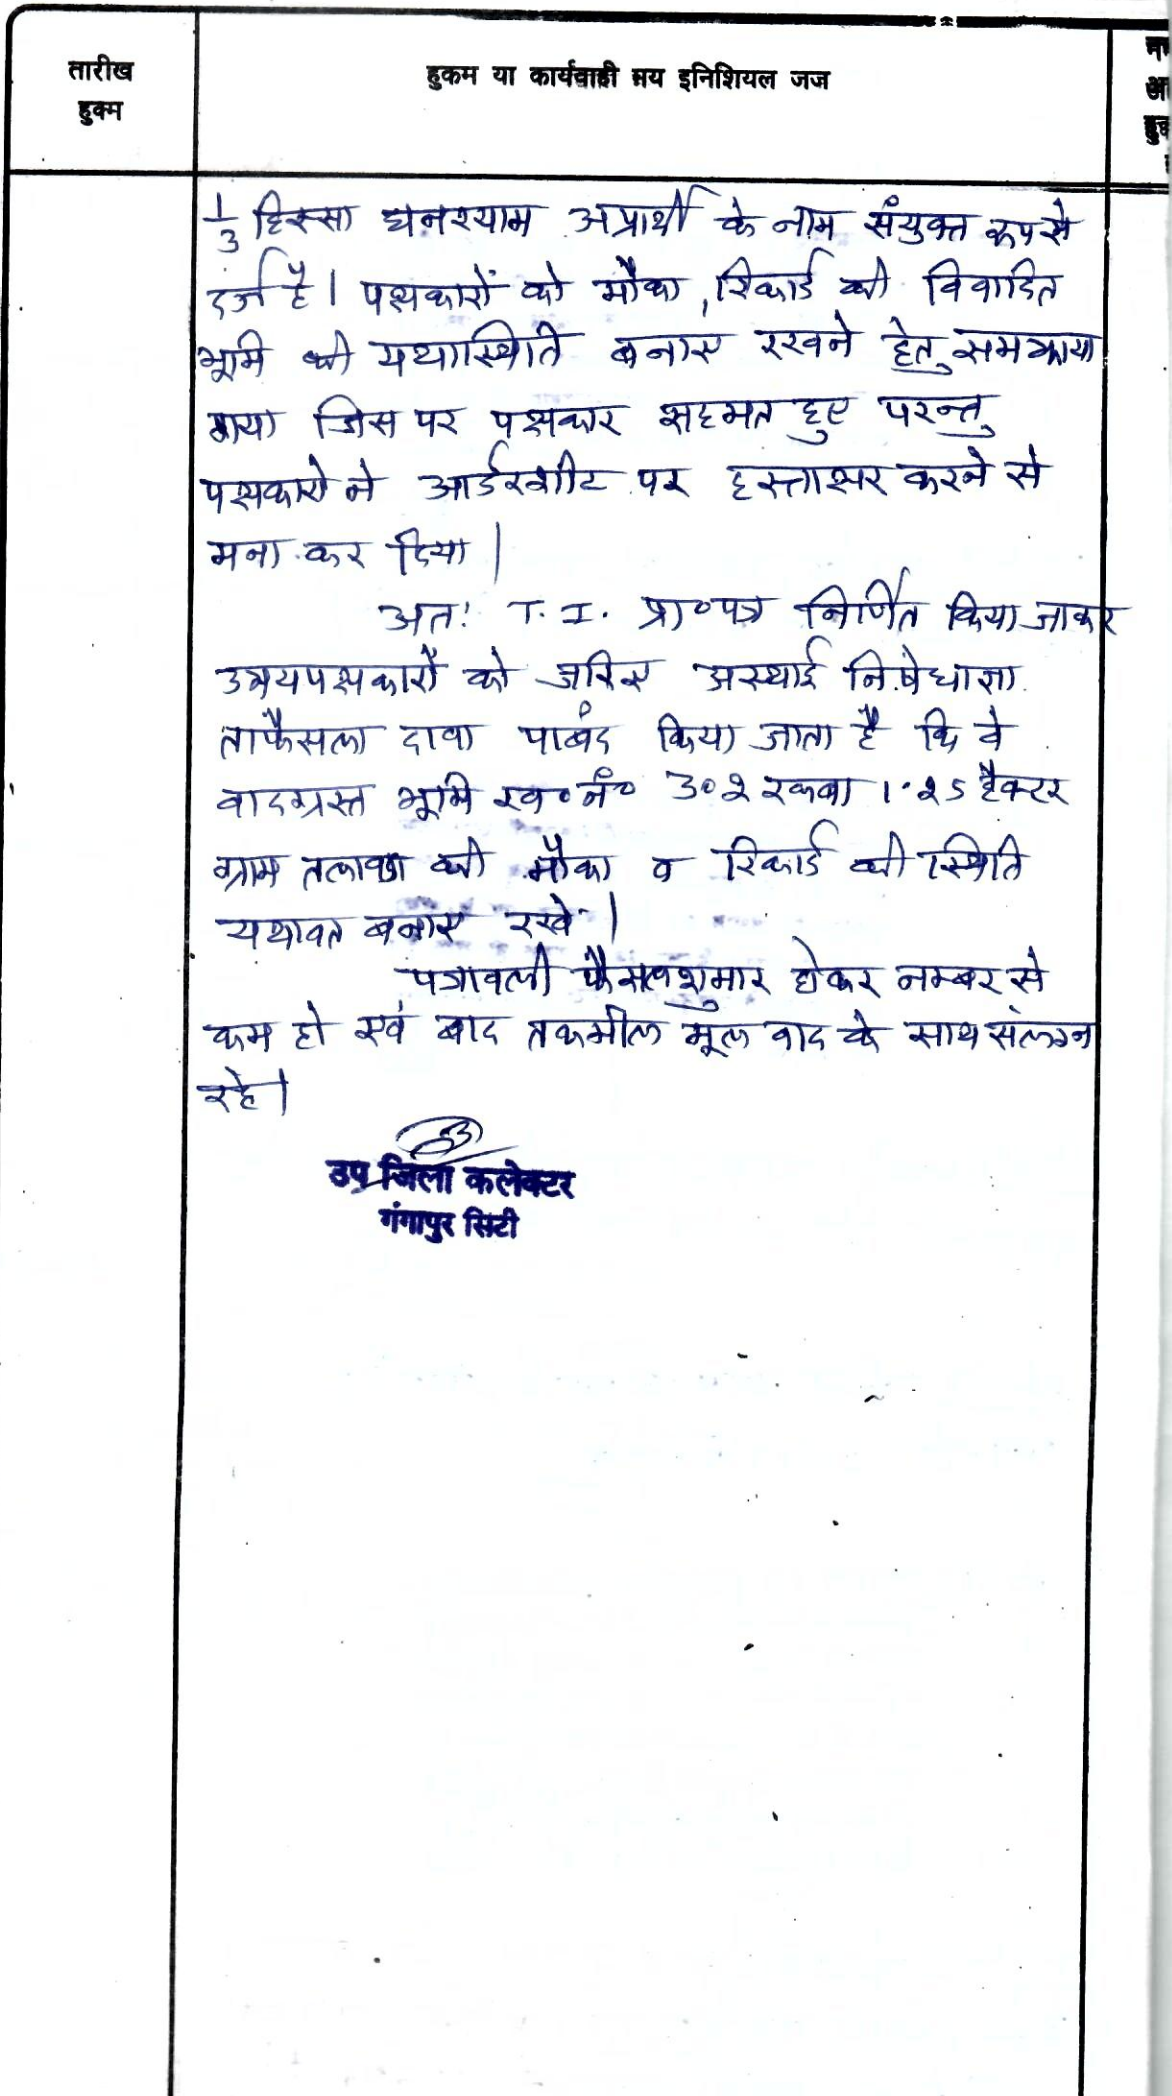 तारीख
हुक्म
हुकम या कार्यवाही मय इनिशियल जज
1/3 हिस्सा घनश्याम अप्रार्थी के नाम संयुक्त रूप से
दर्ज है। पक्षकारों को मौका, रिकार्ड की विवादित
भूमि की यथास्थिति बनाए रखने हेतु समझाया
गया जिस पर पक्षकार सहमत हुए परन्तु
पक्षकारो ने आर्डरशीट पर हस्ताक्षर करने से
मना कर दिया।
अतः T.I. प्रा०पत्र निर्णित किया जाकर
उभयपक्षकारों को जरिए अस्थाई निषेधाज्ञा
ताफैसला दावा पाबंद किया जाता है कि वे
वादग्रस्त भूमि ख०नं० 302 रकबा 1.25 हैक्टर
ग्राम तलावडा की मौका व रिकार्ड की स्थिति
यथावत बनाए रखे।
पत्रावली फैसलशुमार होकर नम्बर से
कम हो एवं बाद तकमील मूल वाद के साथ संलग्न
रहे।
उप जिला कलेक्टर
गंगापुर सिटी